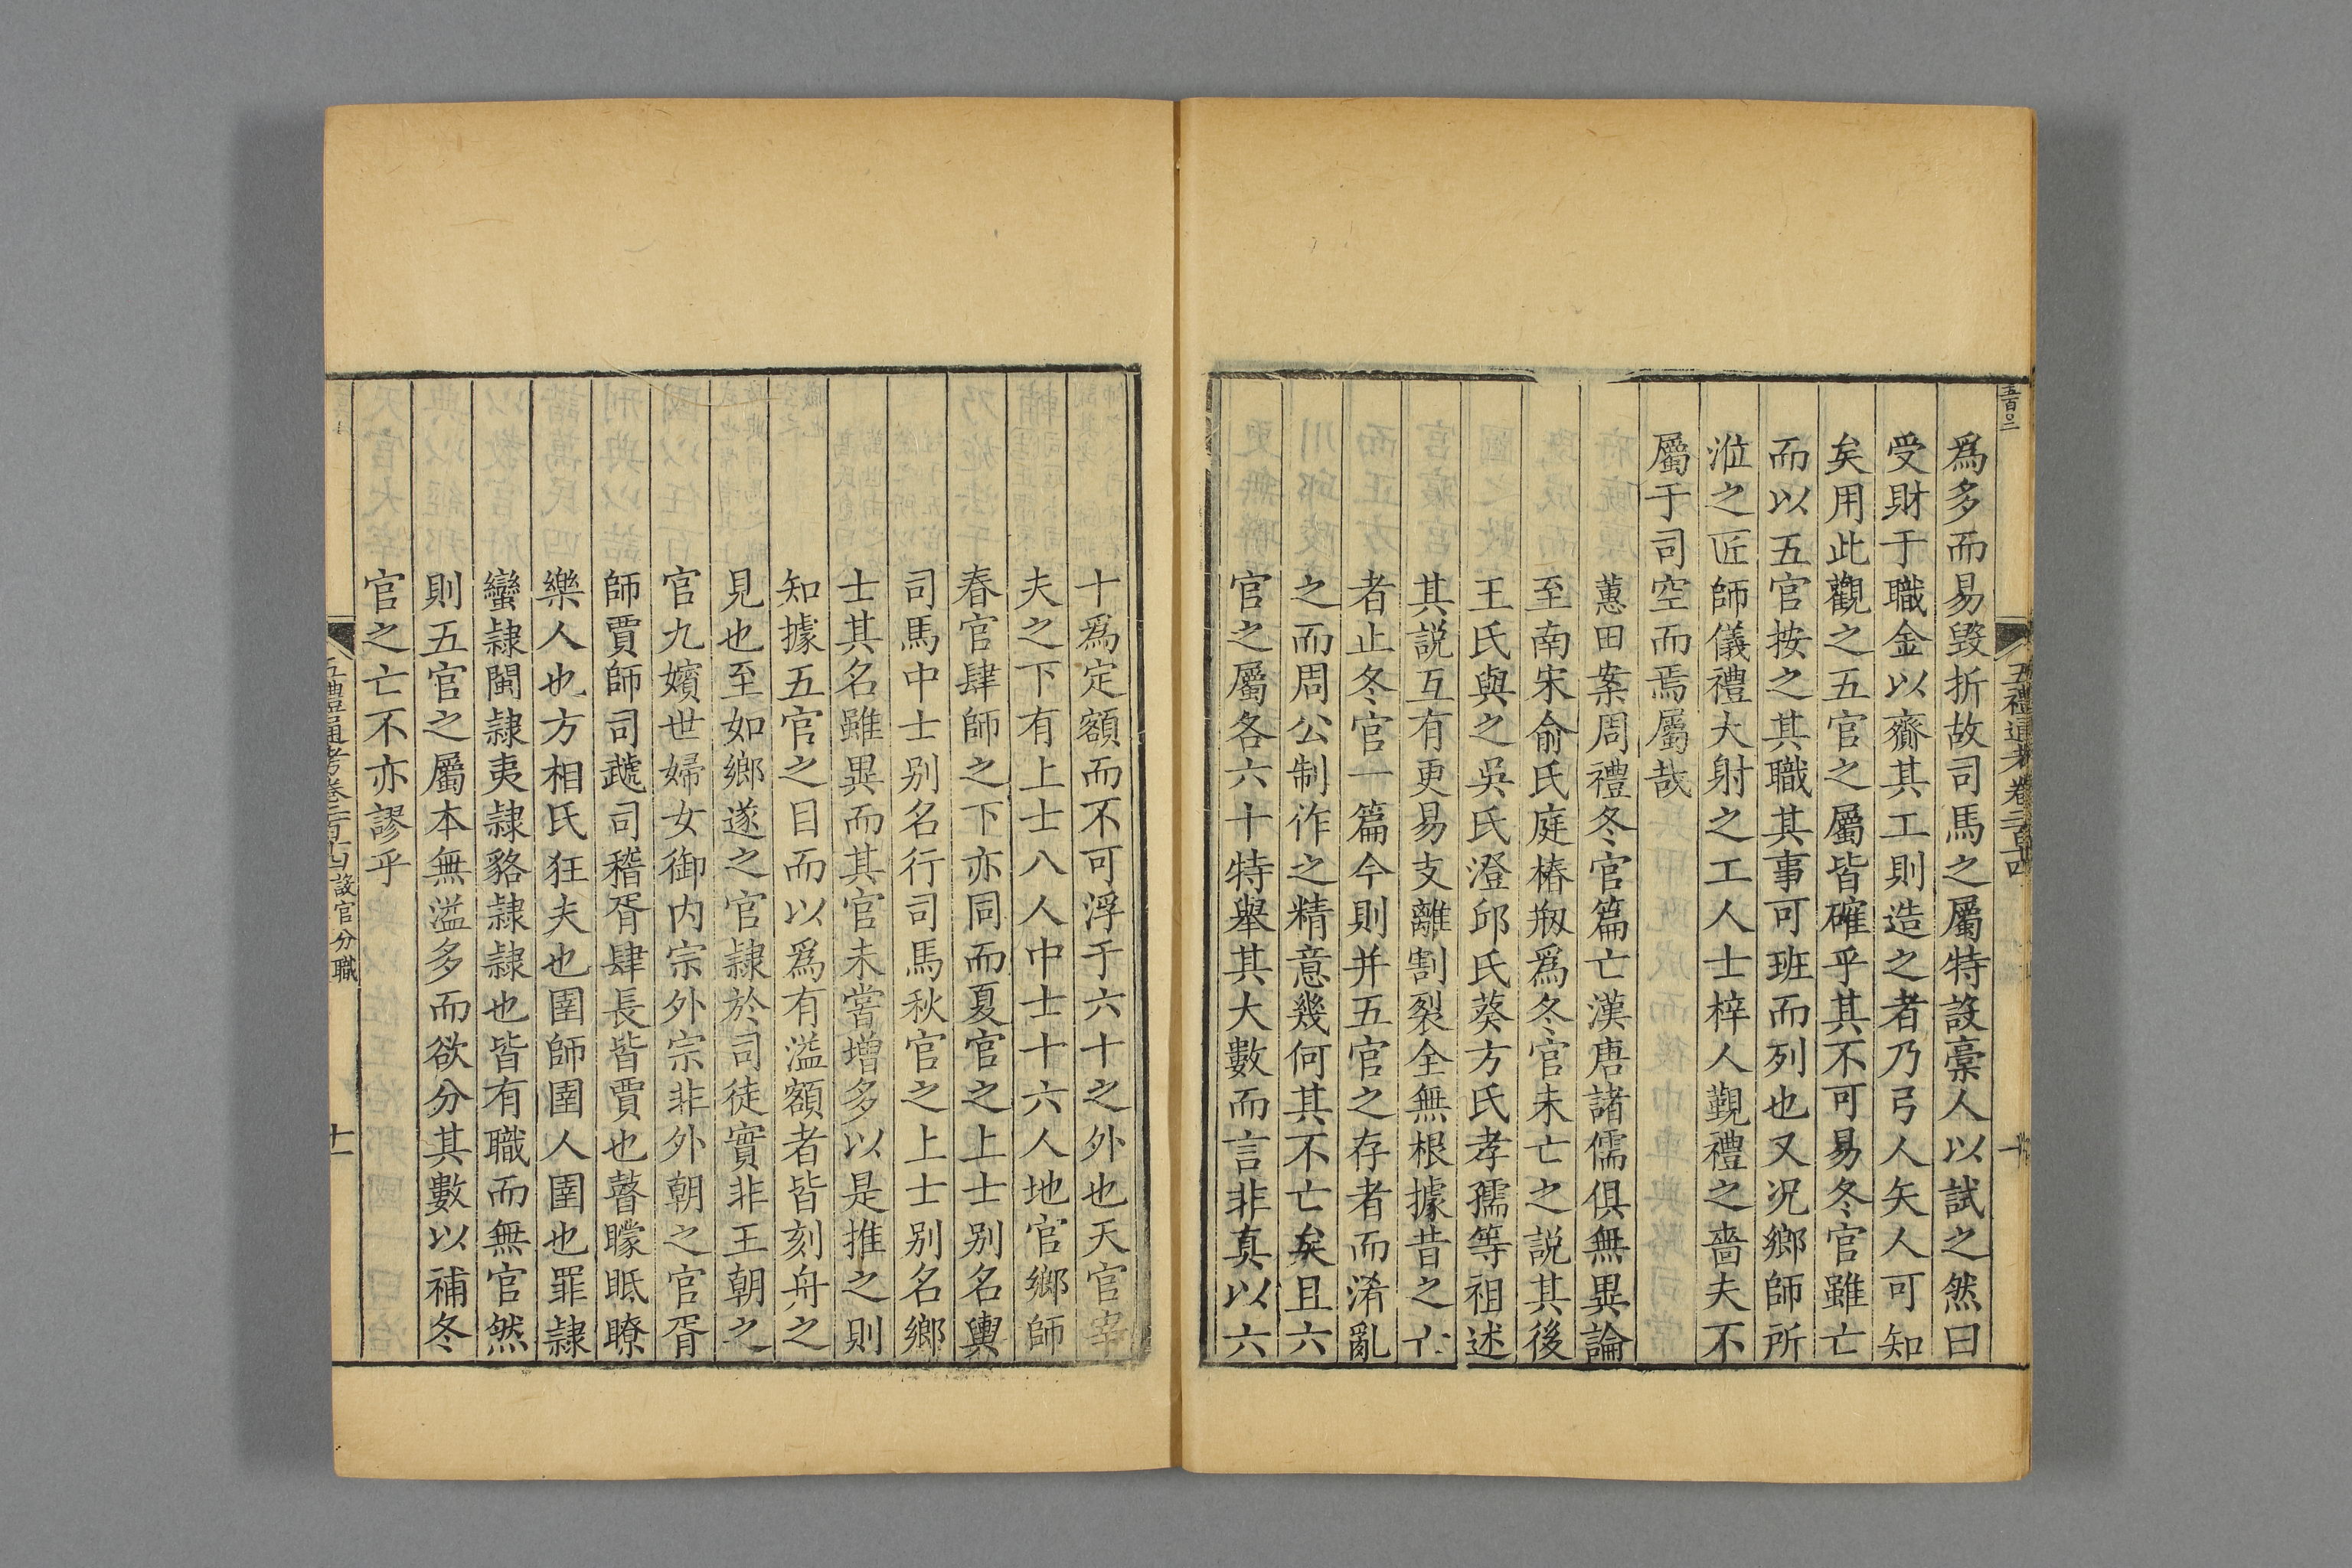 五禮通考卷二百十四
爲多而易毀折故司馬之屬特設稾人以試之然曰
受財于職金以齎其工則造之者乃弓人矢人可知
矣用此觀之五官之屬皆確乎其不可易冬官雖亡
而以五官按之其職其事可班而列也又况鄉師所
涖之匠師儀禮大射之工人士梓人覲禮之嗇夫不
屬于司空而焉屬哉
蕙田案周禮冬官篇亡漢唐諸儒俱無異論
至南宋俞氏庭椿剏爲冬官未亡之説其後
王氏與之吳氏澄邱氏葵方氏孝孺等祖述
其説互有更易支離割裂全無根據昔之亡
者止冬官一篇今則并五官之存者而淆亂
之而周公制作之精意幾何其不亡矣且六
官之屬各六十特舉其大數而言非真以六
十爲定額而不可浮于六十之外也天官宰
夫之下有上士八人中士十六人地官鄉師
春官肆師之下亦同而夏官之上士别名輿
司馬中士别名行司馬秋官之上士别名鄉
士其名雖異而其官未嘗增多以是推之則
知據五官之目而以爲有溢額者皆刻舟之
見也至如鄉遂之官隸於司徒實非王朝之
官九嬪世婦女御内宗外宗非外朝之官胥
師賈師司虣司稽胥肆長皆賈也瞽矇眡瞭
樂人也方相氏狂夫也圉師圉人圉也罪隸
蠻隸閩隸夷隸貉隸隸也皆有職而無官然
則五官之屬本無溢多而欲分其數以補冬
官之亡不亦謬乎
五禮通考卷二百十四 設官分職
十一